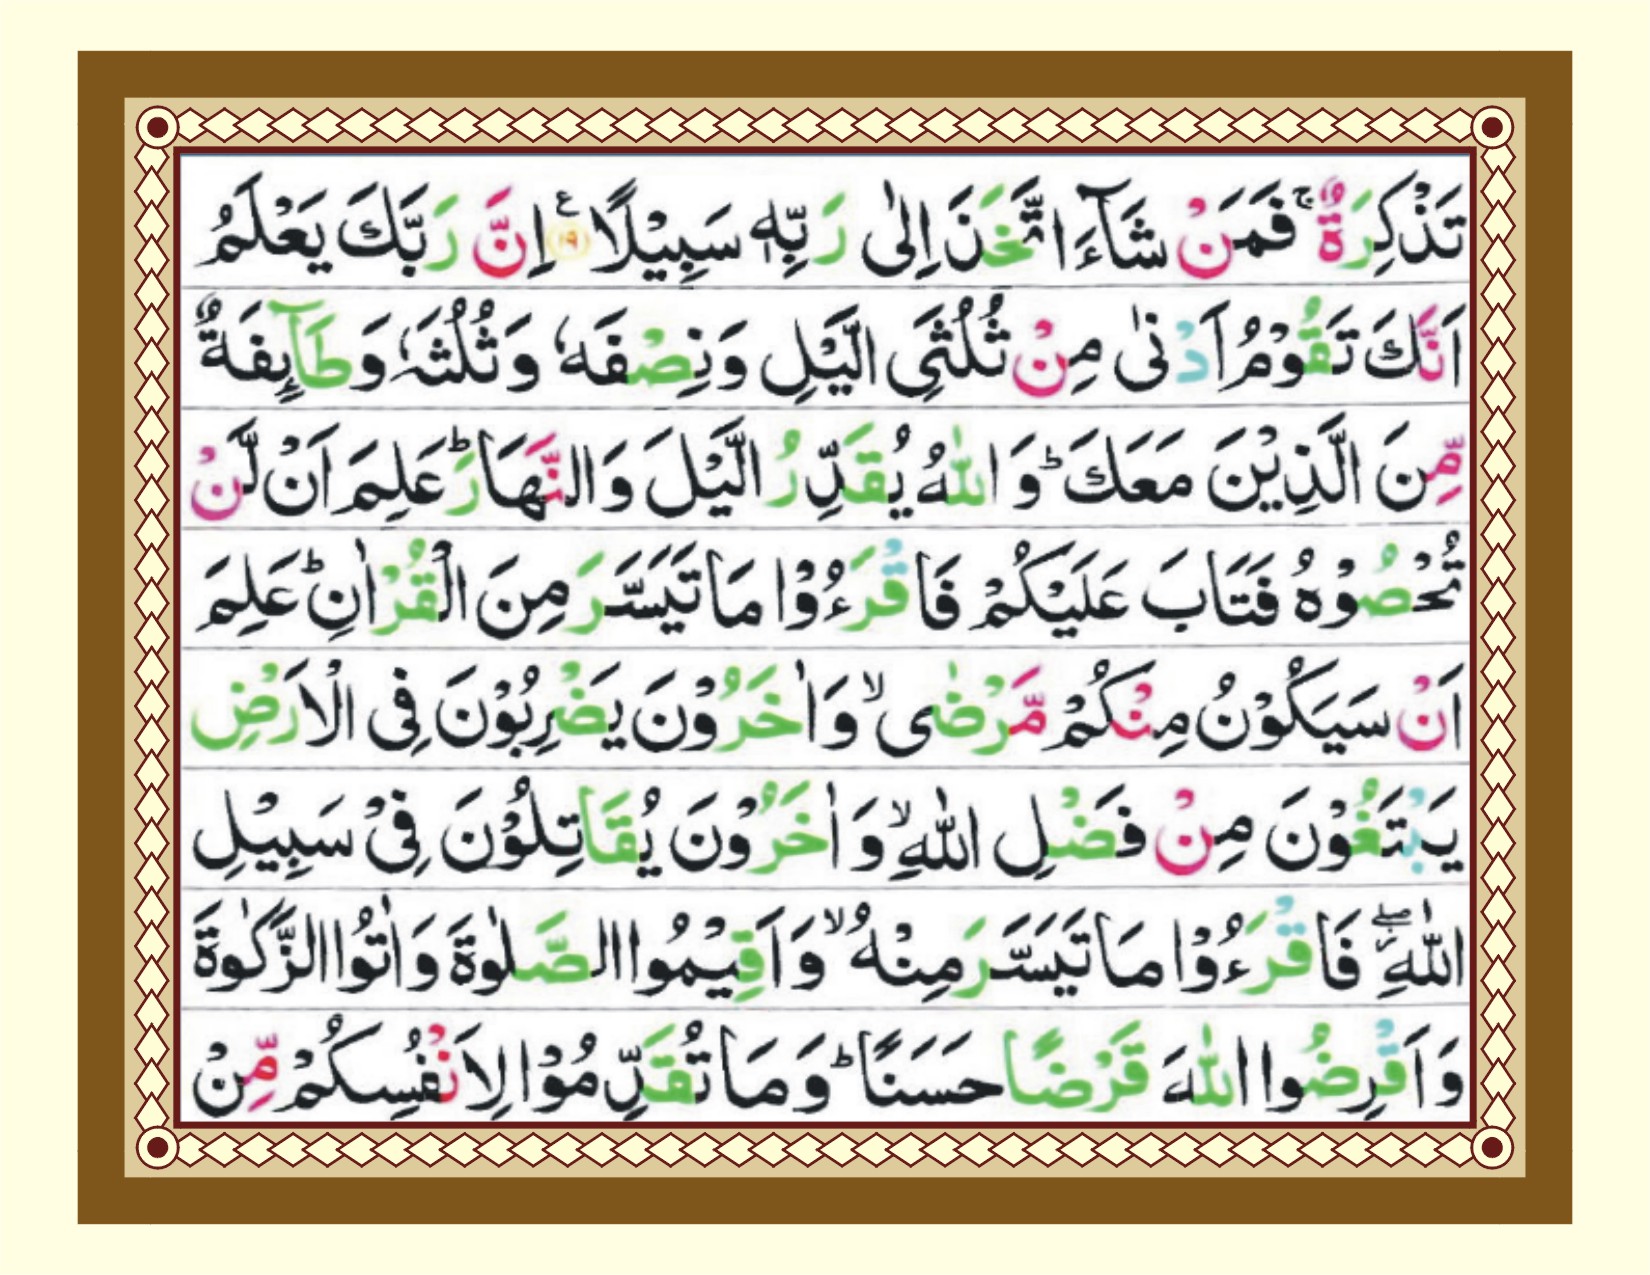 تَذْكِرَةٌ ۚ فَمَنْ شَآءَ اتَّخَذَ اِلٰى رَبِّهٖ سَبِيْلًا ﴿۱۹﴾ ع اِنَّ رَبَّكَ يَعْلَمُ
اَنَّكَ تَقُوْمُ اَدْنٰى مِنْ ثُلُثَىِ الَّيْلِ وَنِصْفَهٗ وَثُلُثَهٗ وَطَآئِفَةٌ
مِّنَ الَّذِيْنَ مَعَكَ ؕ وَاللّٰهُ يُقَدِّرُ الَّيْلَ وَالنَّهَارَ ؕ عَلِمَ اَنْ لَّنْ
تُحْصُوْهُ فَتَابَ عَلَيْكُمْ فَاقْرَءُوْا مَا تَيَسَّرَ مِنَ الْقُرْاٰنِ ؕ عَلِمَ
اَنْ سَيَكُوْنُ مِنْكُمْ مَّرْضٰى ۙ وَاٰخَرُوْنَ يَضْرِبُوْنَ فِى الْاَرْضِ
يَبْتَغُوْنَ مِنْ فَضْلِ اللّٰهِ ۙ وَاٰخَرُوْنَ يُقَاتِلُوْنَ فِىْ سَبِيْلِ
اللّٰهِ ۖ فَاقْرَءُوْا مَا تَيَسَّرَ مِنْهُ ۙ وَاَقِيْمُوا الصَّلٰوةَ وَاٰتُوا الزَّكٰوةَ
وَاَقْرِضُوا اللّٰهَ قَرْضًا حَسَنًا ؕ وَمَا تُقَدِّمُوْا لِاَنْفُسِكُمْ مِّنْ